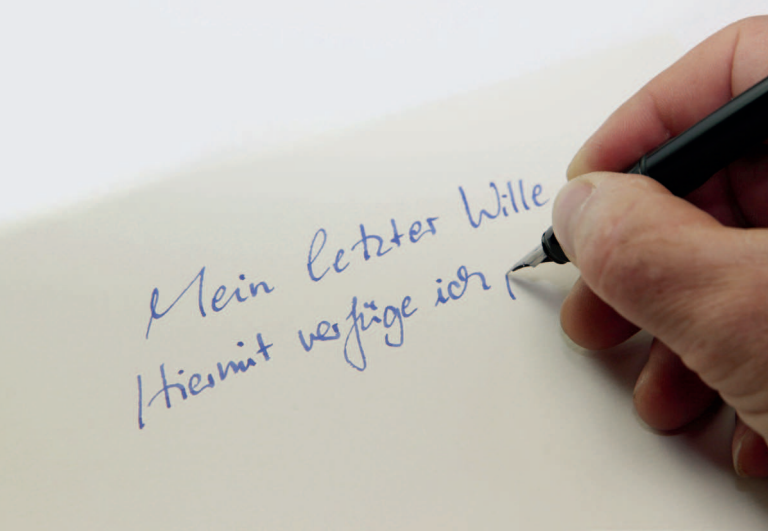 Mein letzter Wille
Hiermit verfüge ich